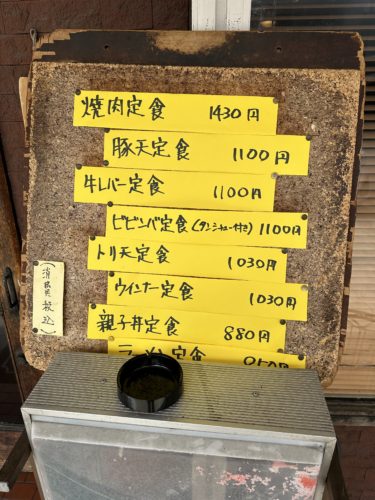 焼肉定食 1430円
豚天定食 1100円
牛レバー定食 1100円
ビビンバ定食 1100円
トリ天定食 1030円
ウインナー定食 1030円
親子丼定食 880円
定食
(消費税込)